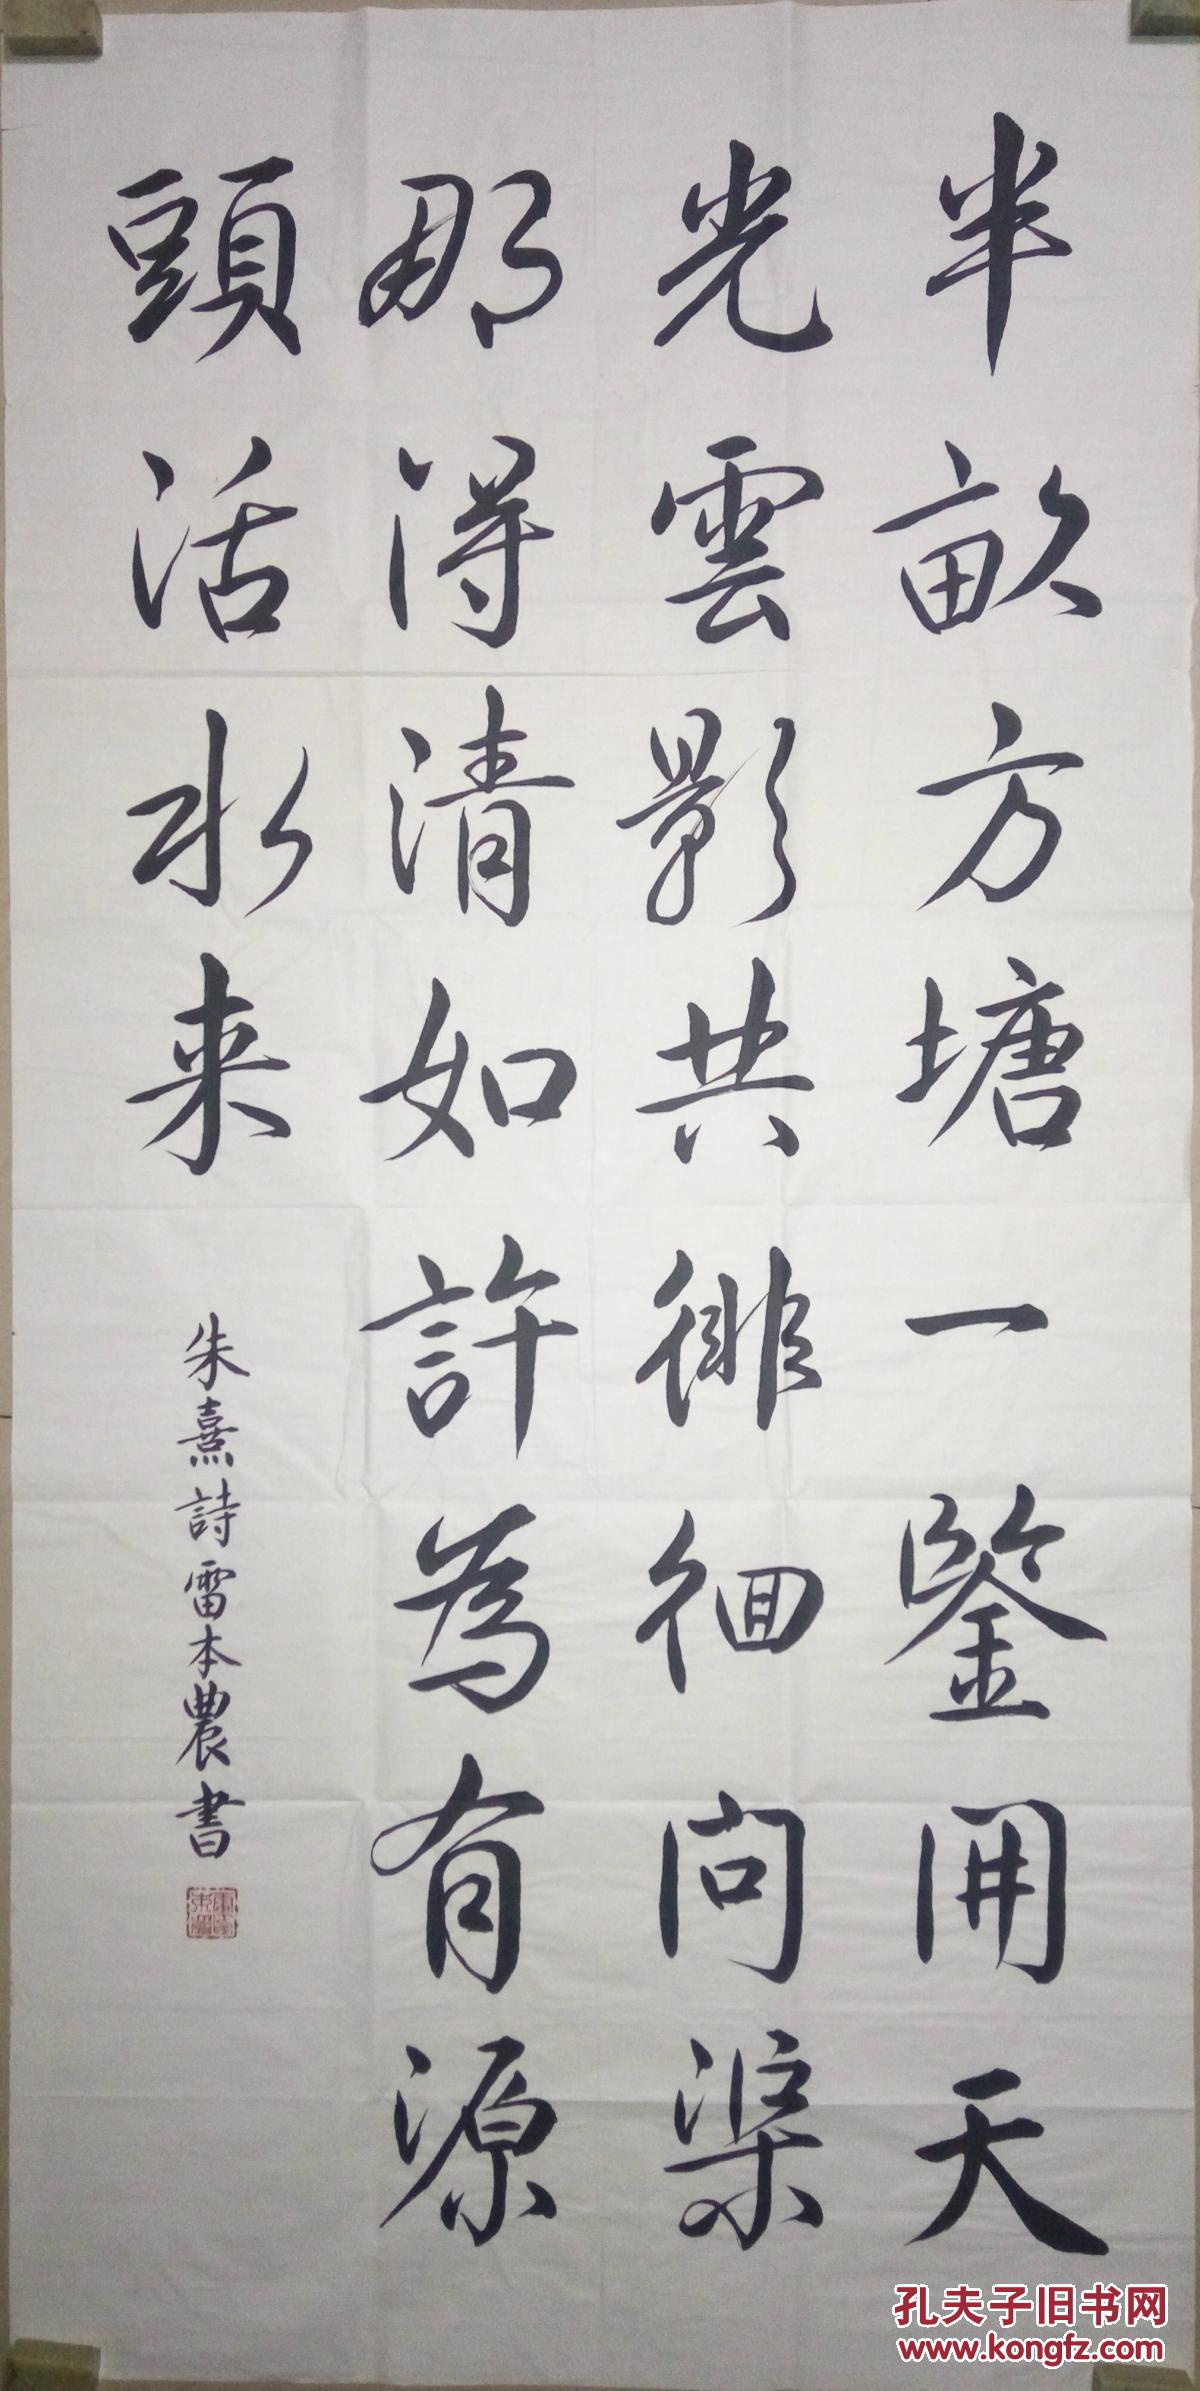 半畝方塘一鑒開天
光雲影共徘徊問渠
那得清如許為有源
頭活水来
朱熹詩雷本農書
孔夫子旧书网
www.kongfz.com